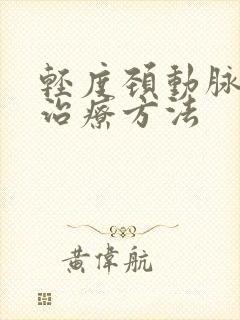 輕度頸動脈
治療方法
黃偉航